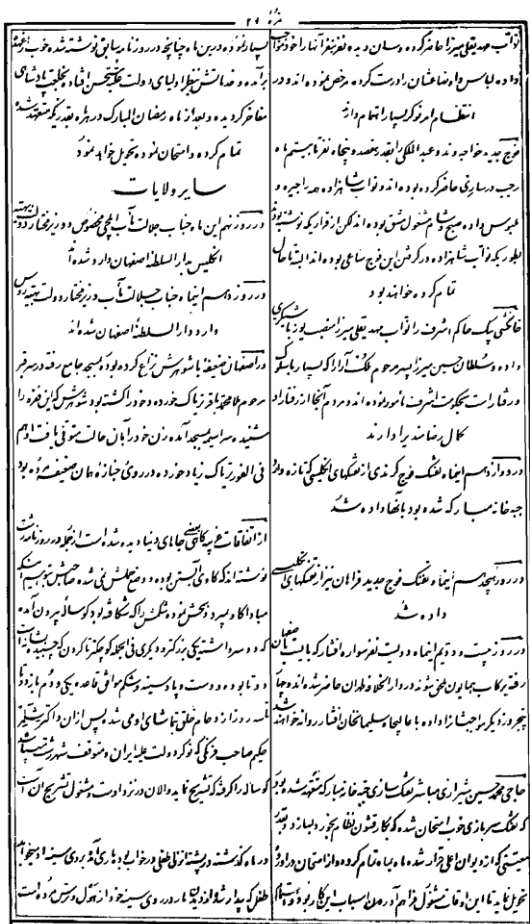 نمره ۲۹
نواب مهدیقلی میرزا حاضر کرده وسان دیده نفر بنفر آنها را خود
داده لباس واوضاعشان را درست کرده مرخص نموده اند ودر
انتظام امر نوکر بسیار اهتمام دارند
فوج جدید خواجه وند وعبدالملکی را بقدر هفتصد وپنجاه نفر تا بیستم ماه
رجب در ساری حاضر کرده بوده اند ونواب شاهزاده همه را جیره و
ملبوس داده صبح وشام مشغول مشق بوده اند لکن از قرار یکه نوشته بودند
بطوریکه نواب شاهزاده در گرفتن این فوج ساعی بوده اند البته تا حال
تمام کرده خواهند بود
حاکم اشرف را نواب مهدیقلی میرزا منصب یوزباشیگری
داده وسلطان حسین میرزا پسر مرحوم ملک آرا را که بسیار با سلوک
ورفتار است بحکومت اشرف مامور نموده اند ومردم آنجا از رفتار او
کمال رضامندی را دارند
در دوازدهم اینماه تفنگ فوج کرندی از تفنگهای انگلیسی تازه وارد
جبه خانه مبارکه شده بود بآنها داده شد
در روز هیجدهم اینماه تفنگ فوج جدید فراهان نیز از تفنگهای انگلیسی
داده شد
در روز بیست ودویم اینماه دویست نفر سواره افشار که بایست باصفهان
رفته برکاب همایون ملحق شوند در دارالخلافه طهران حاضر شده اند وجیره
پنجروز دیگر مواجب آنها را داده با عالیجاه سلیمانخان افشار روانه خواهند شد
حاجی محمد حسین شیرازی مباشر تفنگ سازی جبه خانه مبارکه متعهد شده بود
که تفنگ سربازی خوب امتحان شده که بکار قشون نظام بخورد بسازد وبقدر
قیمتی که از دیوان اعلی قرار شده ماه بماه تمام کرده از امتحان در آورده
تحویل نماید تا این اوقات مشغول فراهم آوردن اسباب این کار بوده
بسیار نموده درین ماه چنانچه در روزنامه سابق نوشته شده خوب از عهده
برآمده وخدماتش بنظر اولیای دولت علیه مستحسن افتاده بخلعت پادشاهی
مفاخر گردیده وبعد از ماه رمضان المبارک در هر ماه بقدریکه متعهد شده
تمام کرده وامتحان نموده تحویل خواهد نمود
سایر ولایات
در روز نهم این ماه جناب جلالت مآب ایلچی مخصوص ووزیر مختار دولت بهیه
انگلیس بدار السلطنه اصفهان وارد شده اند
در روز دهم اینماه جناب جلالت مآب وزیر مختار دولت بهیه روس
وارد دار السلطنه اصفهان شده اند
در اصفهان ضعیفه با شوهرش نزاع کرده بوده بمسجد جامع رفته در سر قبر
مرحوم ملا محمد باقر تریاک خورده وخود را کشته بود شوهرش که این فقره را
شنیده سراسیمه بمسجد آمده زن خود را بآن حالت متوفی یافت او هم
فی الفور تریاک زیاد خورده در روی جنازه همان ضعیفه مرده بود
از اتفاقات غریبه که گاهی در بعضی جاهای دنیا دیده شده است از جمله در روزنامه رشت
نوشته اند که گاوی آبستن بوده ووضع حملش نمی شده صاحبش بتوهم اینکه
مبادا گاو بمیرد ذبحش نموده وشکمش را که شکافته بود گوساله بیرون آمده
که دو سر داشته یکی بزرگتر ودیگری فی الجمله کوچکتر تا گردن که چسبیده بهم
دو تا بوده ودست وپا وسینه وشکم موافق قاعده یکی ودم باز دو تا
تا سه روز از دحام خلق بتماشای او می شد پس از آن داکتر
حکیم صاحب فرنگی که نوکر دولت علیه ایران ومتوقف شهر رشت میباشد
گوساله را گرفته که تشریح نماید والان در نزد اوست ومشغول تشریح آن است
در ماه گذشته در پشته از نی طفلی در خواب بوده ماری آمده بروی سینه او میخوابد
طفل که بیدار شده از دیدن مار در روی سینه خود از هول وترس مرده است